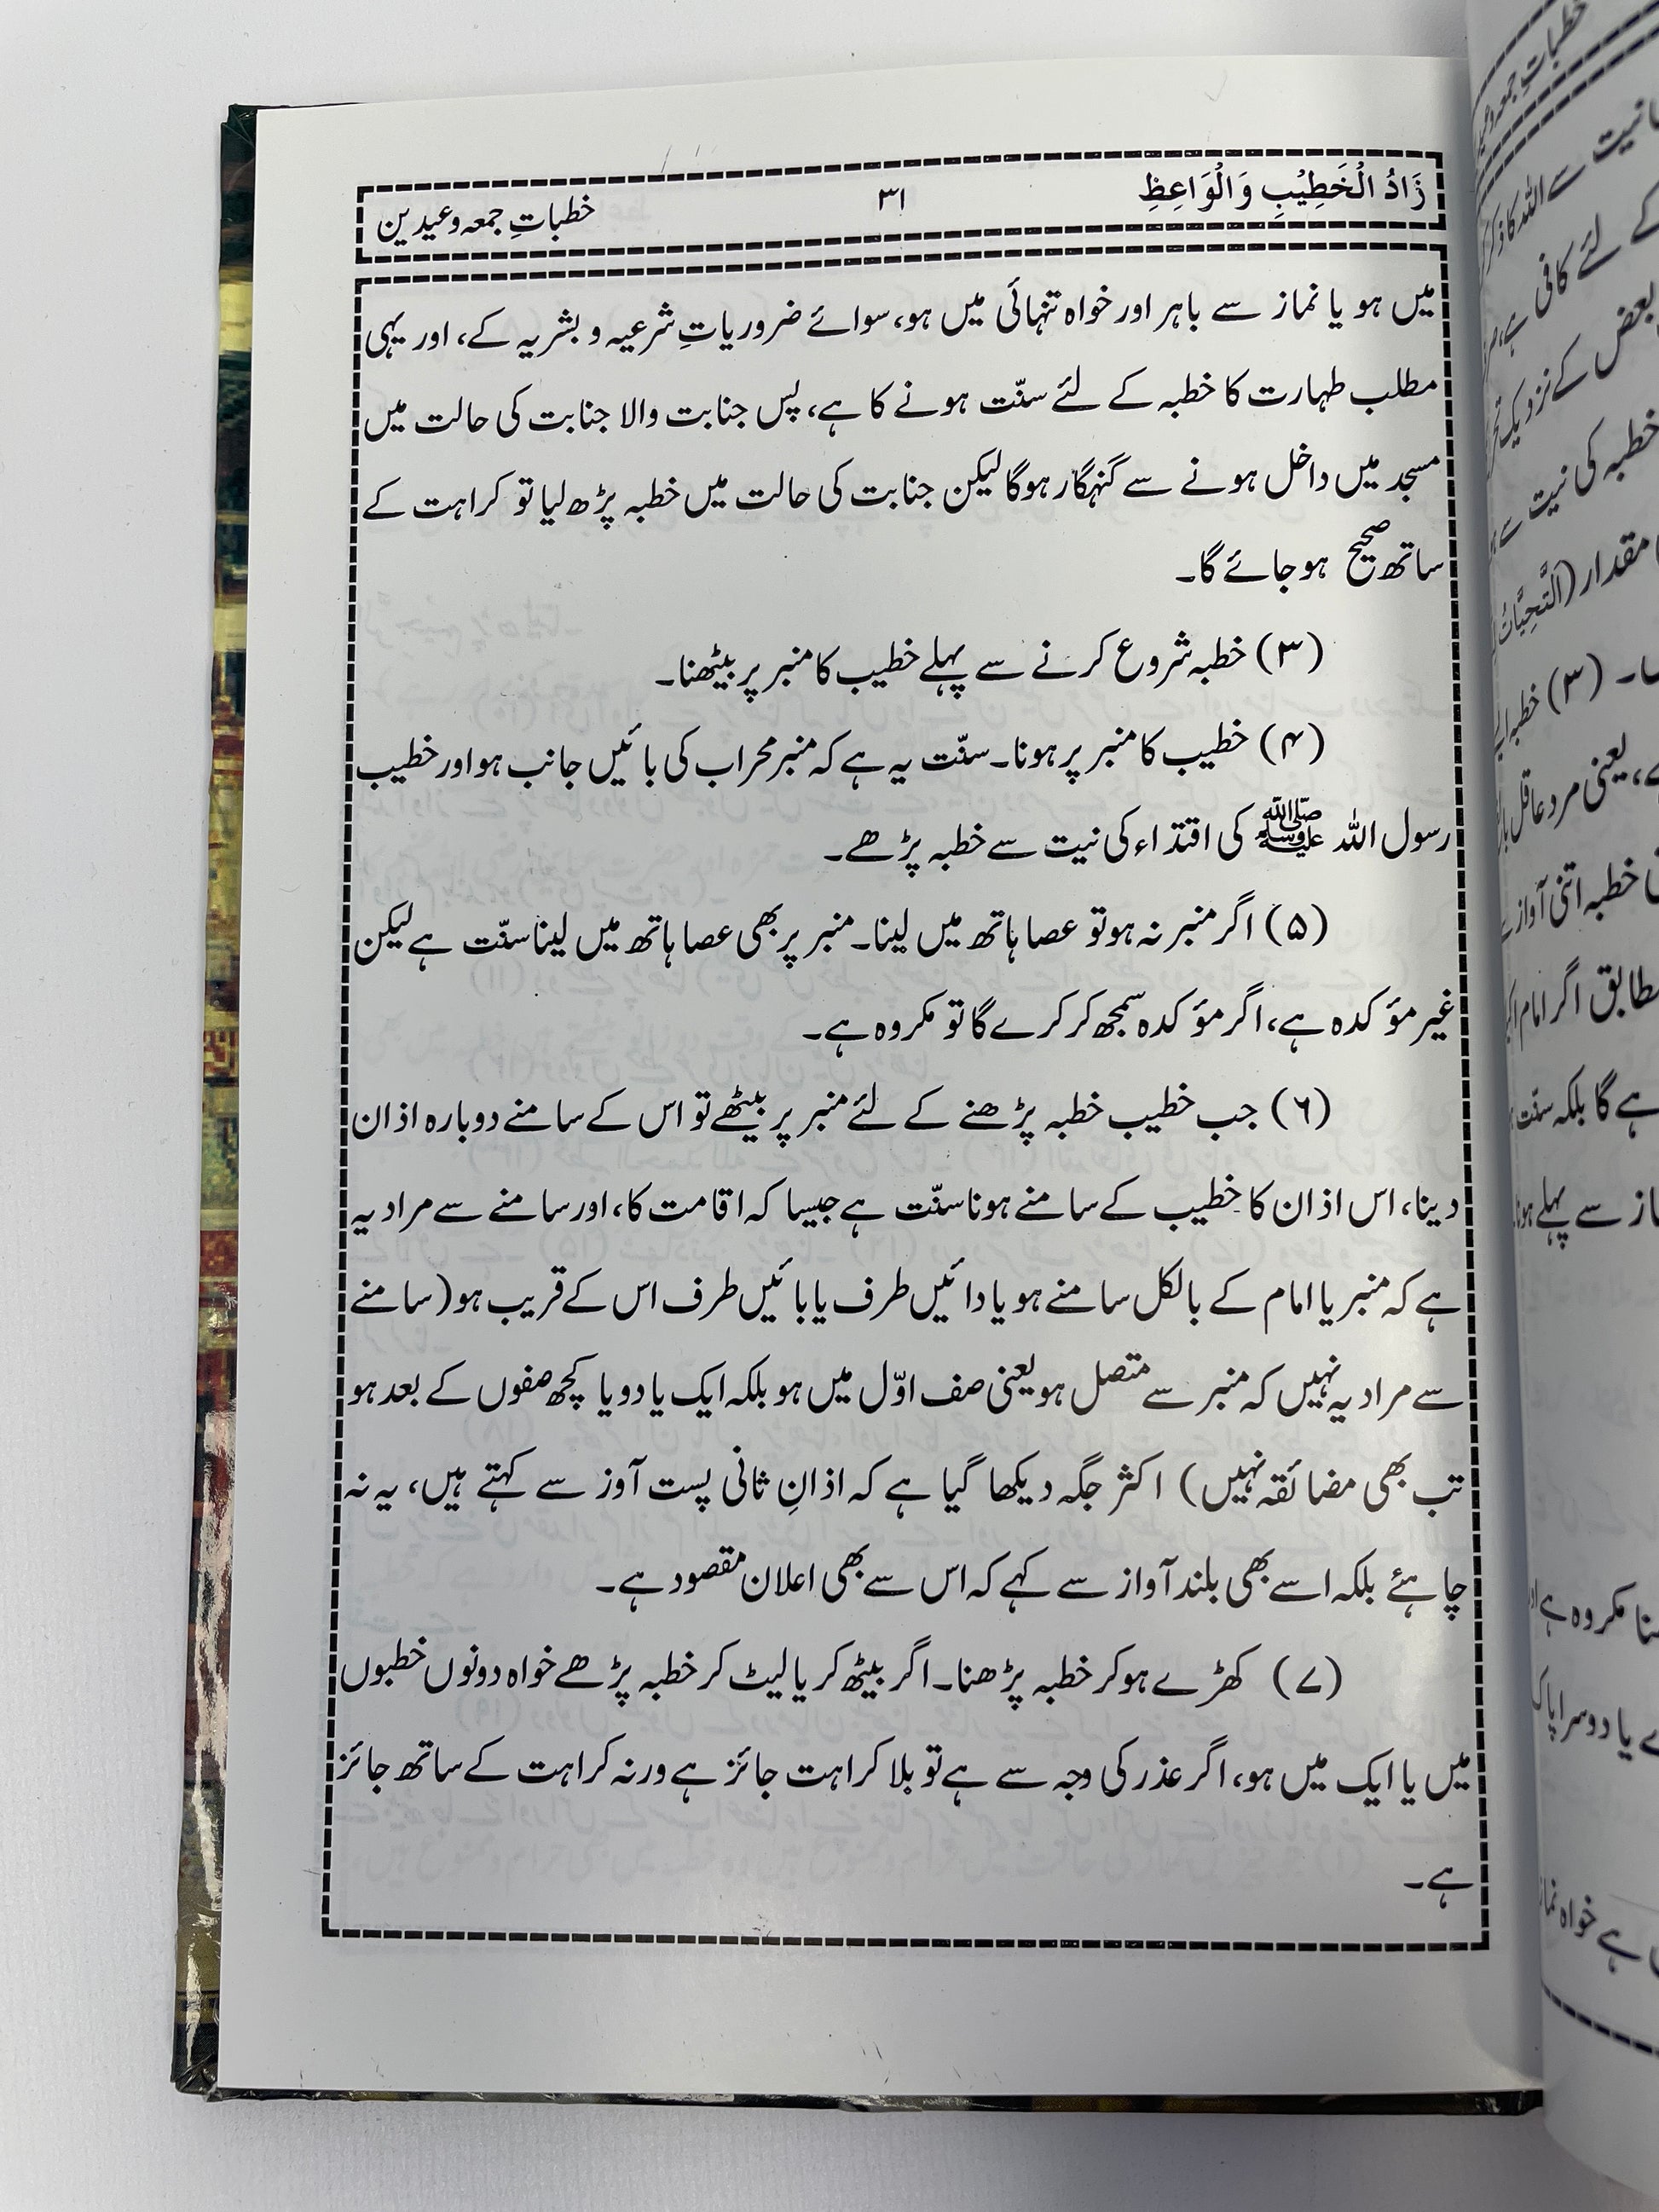 زَادُ الْخَطِيْبِ وَالْوَاعِظِ ۳۱ خطباتِ جمعہ وعیدین
میں ہو یا نماز سے باہر اور خواہ تنہائی میں ہو، سوائے ضروریاتِ شرعیہ و بشریہ کے، اور یہی
مطلب طہارت کا خطبہ کے لئے سنّت ہونے کا ہے، پس جنابت والا جنابت کی حالت میں
مسجد میں داخل ہونے سے گنہگار ہوگا لیکن جنابت کی حالت میں خطبہ پڑھ لیا تو کراہت کے
ساتھ صحیح ہوجائے گا۔
(۳) خطبہ شروع کرنے سے پہلے خطیب کا منبر پر بیٹھنا۔
(۴) خطیب کا منبر پر ہونا۔ سنّت یہ ہے کہ منبر محراب کی بائیں جانب ہو اور خطیب
رسول اللہ ﷺ کی اقتداء کی نیت سے خطبہ پڑھے۔
(۵) اگر منبر نہ ہو تو عصا ہاتھ میں لینا۔ منبر پر بھی عصا ہاتھ میں لینا سنّت ہے لیکن
غیر مؤکدہ ہے، اگر مؤکدہ سمجھ کر کرے گا تو مکروہ ہے۔
(۶) جب خطیب خطبہ پڑھنے کے لئے منبر پر بیٹھے تو اس کے سامنے دوبارہ اذان
دینا، اس اذان کا خطیب کے سامنے ہونا سنّت ہے جیسا کہ اقامت کا، اور سامنے سے مراد یہ
ہے کہ منبر یا امام کے بالکل سامنے ہو یا دائیں طرف یا بائیں طرف اس کے قریب ہو (سامنے
سے مراد یہ نہیں کہ منبر سے متصل ہو یعنی صف اوّل میں ہو بلکہ ایک یا دو یا کچھ صفوں کے بعد ہو
تب بھی مضائقہ نہیں) اکثر جگہ دیکھا گیا ہے کہ اذانِ ثانی پست آوز سے کہتے ہیں، یہ نہ
چاہئے بلکہ اسے بھی بلند آواز سے کہے کہ اس سے بھی اعلان مقصود ہے۔
(۷) کھڑے ہوکر خطبہ پڑھنا۔ اگر بیٹھ کر یا لیٹ کر خطبہ پڑھے خواہ دونوں خطبوں
میں یا ایک میں ہو، اگر عذر کی وجہ سے ہے تو بلا کراہت جائز ہے ورنہ کراہت کے ساتھ جائز
ہے۔